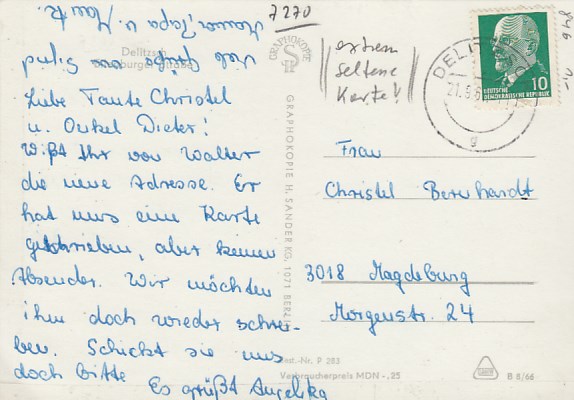 7270
846
Mama, Papa u. Haut
Delitzsch
burger Straße
viele Grüße von Sigrid
GRAPHOKOPIE
extrem
seltene
Karte!
DELIT
21.
g
10
DEUTSCHE
DEMOKRATISCHE REPUBLIK
1,-
Liebe Tante Christel
u. Onkel Dieter!
Wißt Ihr von Walter
die neue Adresse. Er
hat uns eine Karte
geschrieben, aber keinen
Absender. Wir möchten
ihm doch wieder schrei-
ben. Schickt sie uns
doch bitte
Es grüßt Angelika
GRAPHOKOPIE H. SANDER KG, 1071 BERLIN
Frau
Christel Bernhardt
3018 Magdeburg
Morgenstr. 24
Best.-Nr. P 283
Verbraucherpreis MDN -,25
B 8/66